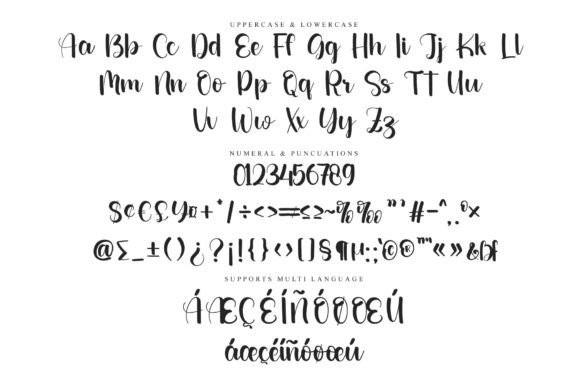 UPPERCASE & LOWERCASE
Aa Bb Cc Dd Ee Ff Gg Hh Ii Jj Kk Ll
Mm Nn Oo Pp Qq Rr Ss Tt Uu
Vv Ww Xx Yy Zz
NUMERAL & PUNCUATIONS
0123456789
$¢€£¥¤+*/÷<>=≤≥~%‰"'#-^,.°×
@∑_±()¿?¡!{}‹›[]§¶µ:;'©®""«»&
SUPPORTS MULTI LANGUAGE
ÁÆÇÉÍÑÓØŒÚ
áæçéíñóøœú